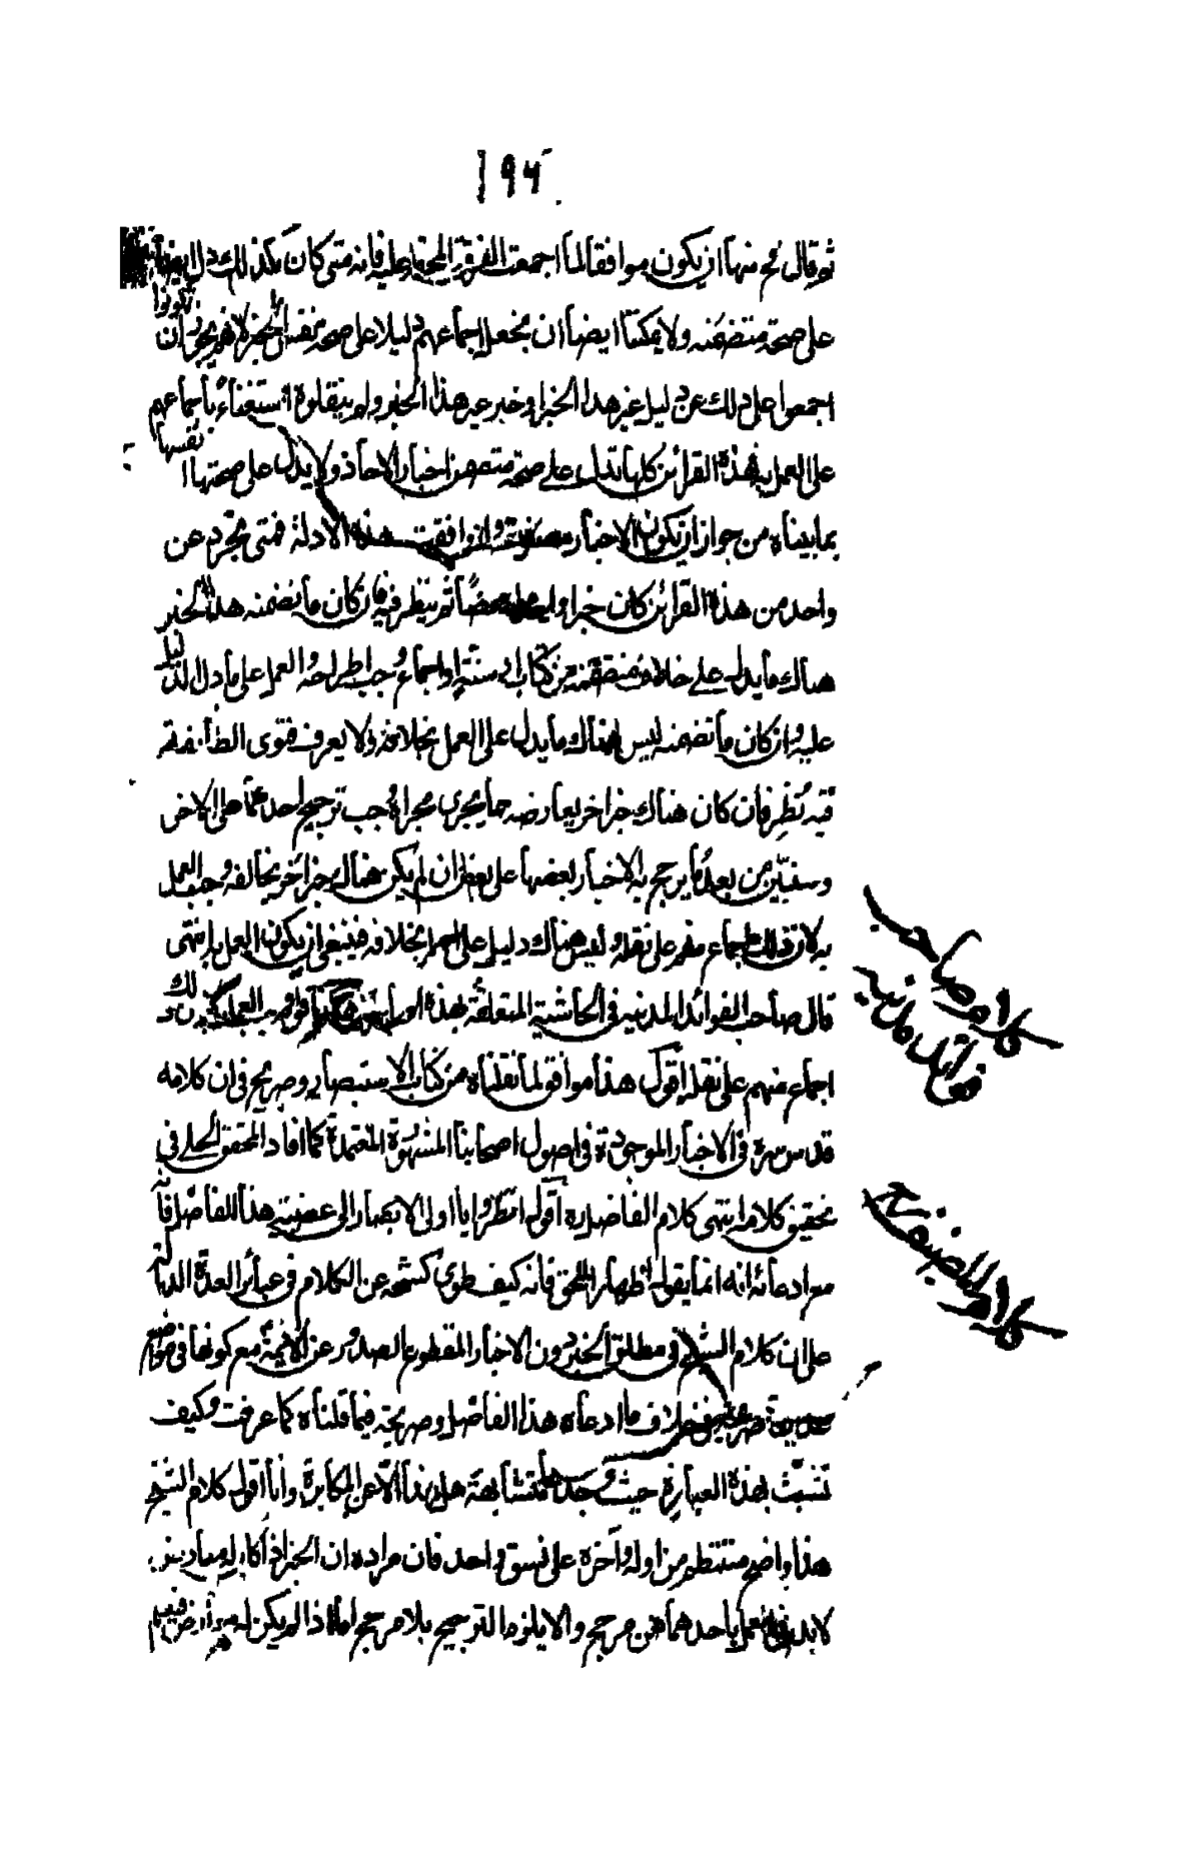 ١٩٤
ثم قال ره منها ان يكون موافقا لما اجمعت الفرقة المحقة عليه فانه متى كان كذلك دل ايضا
على صحة متضمنه ولا يمكننا ايضا ان نجعل اجماعهم دليلا على صحة نفس الخبر لانهم يجوز ان يكونوا
اجمعوا على ذلك عن دليل غير هذا الخبر او خبر غير هذا الخبر ولم ينقلوه استغناء باجماعهم
على العمل به فهذه القرائن كلها تدل على صحة متضمن اخبار الاحاد ولا يدل على صحتها انفسها
بما بيناه من جواز ان تكون الاخبار مصنوعة وان وافقت هذه الادلة فمتى تجرد عن
واحد من هذه القرائن كان خبرا واحدا محضا ثم ينظر فيه فان كان ما تضمنه هذا الخبر
هناك ما يدل على خلاف متضمنه من كتاب او سنة او اجماع وجب اطراحه والعمل على ما دل الدليل
عليه وان كان ما تضمنه ليس هناك ما يدل على العمل بخلافه ولا يعرف فتوى الطائفة
فيه نظر فان كان هناك خبر اخر يعارضه مما يجرى مجراه وجب ترجيح احدهما على الاخر
وسنبين من بعد ما يرجح به الاخبار بعضها على بعض وان لم يكن هناك خبر اخر يخالفه وجب العمل
به لان ذلك اجماع منهم على نقله وليس هناك دليل على العمل بخلافه فينبغى ان يكون العمل به انتهى
قال صاحب الفوائد المدنية فى الحاشية المتعلقة بهذه وجب العمل به لان ذلك
اجماع منهم على نقله اقول هذا موافق لما نقلناه من كتاب الاستبصار وصريح فى ان كلامه
قدس سره فى الاخبار الموجودة فى اصول اصحابنا المشهورة المعتمدة كما افاد المحقق الحلى فى
تحقيق كلامه انتهى كلام الفاضل ره اقول انظروا يا اولى الابصار الى عصبية هذا الفاضل فى
ادعائه انه انما يقول اظهارا للحق فانه كيف طوى كشحه عن الكلام فى عبائر العدة الدالة
على ان كلام الشيخ فى مطلق الخبر دون الاخبار المقطوع الصدور عن الائمة مع كونها فى مواضع
عديدة صريحة فى خلاف ما ادعاه هذا الفاضل وصريحة فيما قلناه كما عرفت وكيف
تشبث بهذه العبارة حيث وجدها متشابهة هل هذا الا عين المكابرة وانا اقول كلام الشيخ
هذا واضح منتظم من اوله وآخره على نسق واحد فان مراده ان الخبر اذا كان له معارض
لا بد فى العمل باحدهما من مرجح والا يلزم الترجيح بلا مرجح اما اذا لم يكن له معارض فيتم
كلام صاحب
فوائد مدنيه
كلام المصنف ره